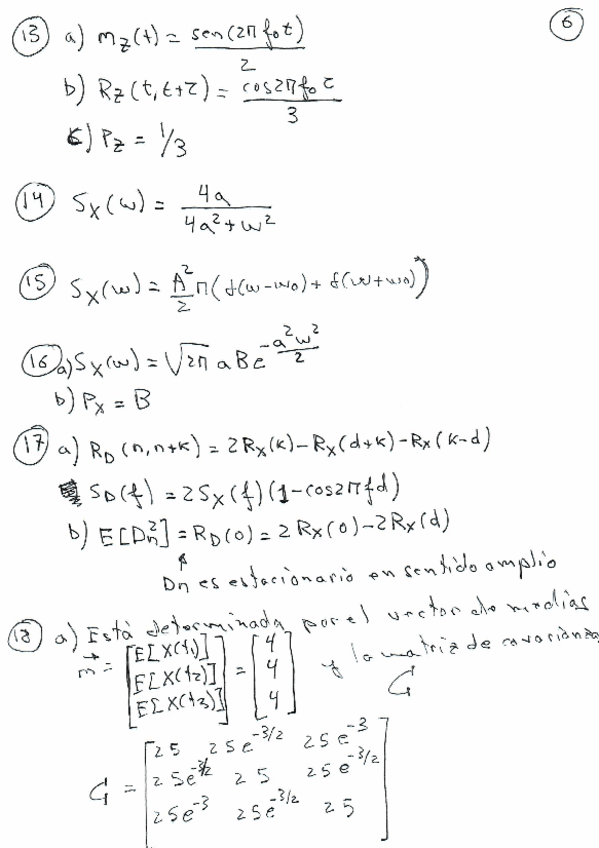 6
13 a) m_Z(t) = sen(2πf₀t)/2
b) R_Z(t, t+τ) = cos2πf₀τ/3
c) P_Z = 1/3
14 S_X(w) = 4a/(4a²+w²)
15 S_X(w) = A²/2 π(δ(w-w₀) + δ(w+w₀))
16 a) S_X(w) = √2π aBe^(-a²w²/2)
b) P_X = B
17 a) R_D(n, n+k) = 2R_X(k) - R_X(d+k) - R_X(k-d)
S_D(f) = 2S_X(f)(1-cos2πfd)
b) E[Dn²] = R_D(0) = 2R_X(0) - 2R_X(d)
↑
Dn es estacionario en sentido amplio
18 a) Está determinada por el vector de medias
m⃗ = [E[X(t₁)] E[X(t₂)] E[X(t₃)]] = [4 4 4] y la matriz de covarianza
C
C = [25 25e^(-3/2) 25e^(-3)
25e^(-3/2) 25 25e^(-3/2)
25e^(-3) 25e^(-3/2) 25]